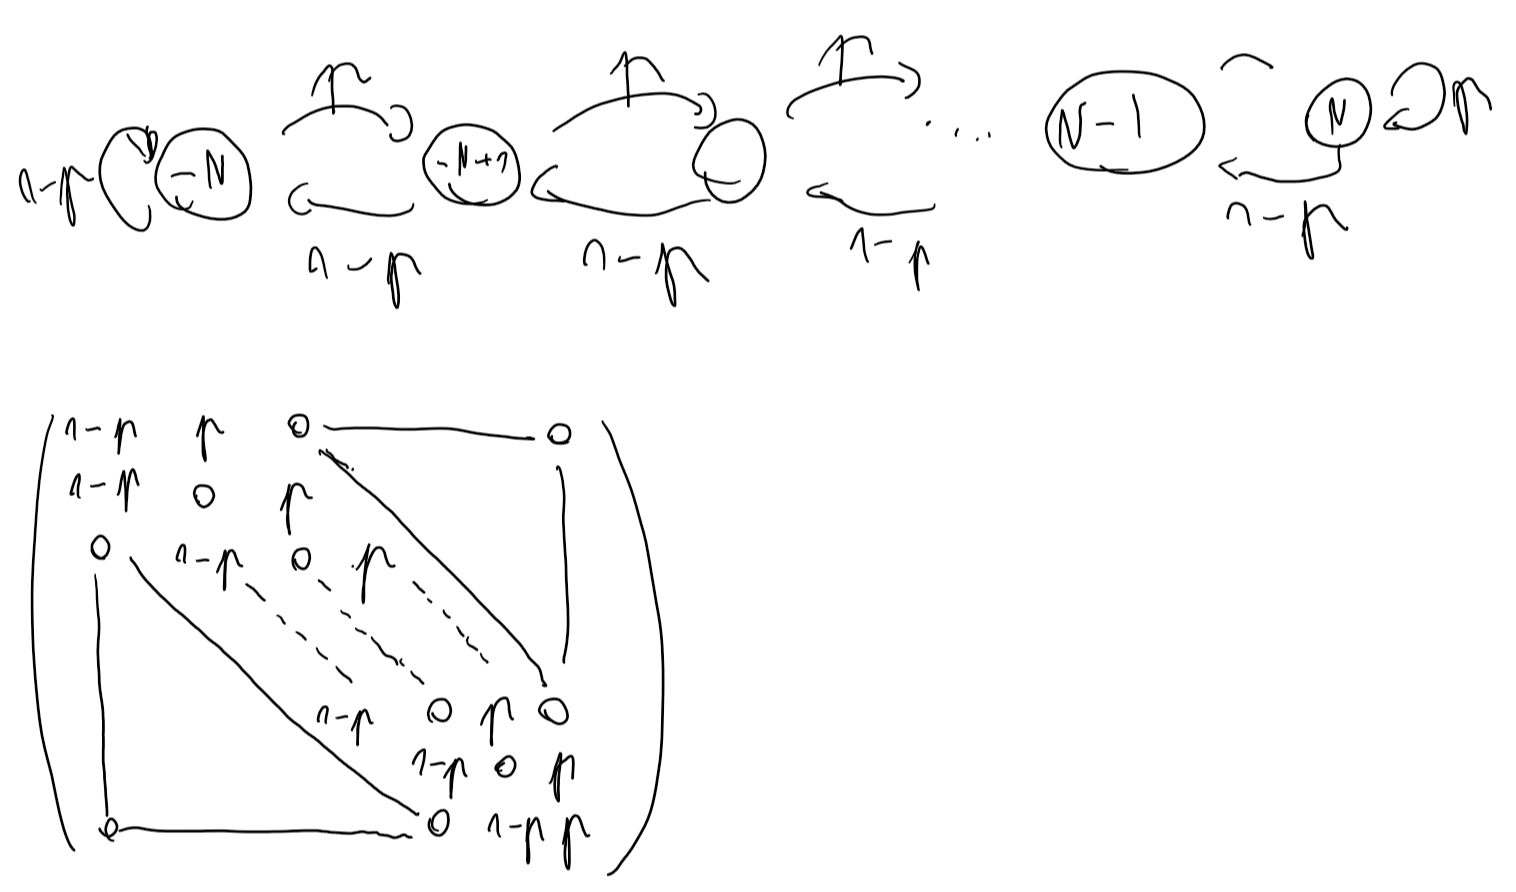 p p p
1-p -N -N+1 .... N-1 N p
1-p 1-p 1-p 1-p
1-p p 0 0
1-p 0 p
0 1-p 0 p
1-p 0 p 0
1-p 0 p
0 0 1-p p